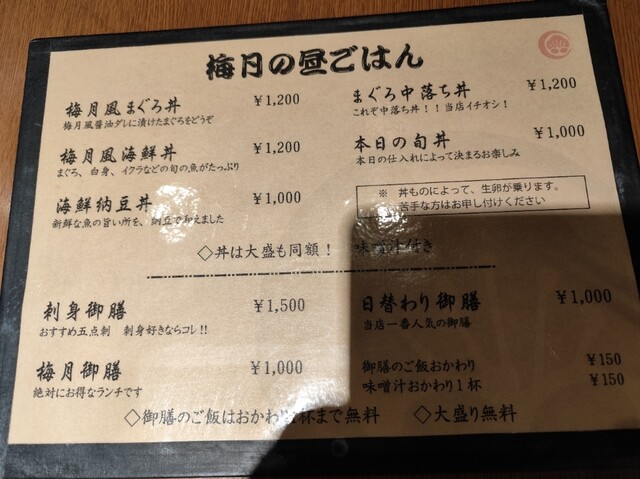 梅月の昼ごはん
梅月風まぐろ丼 ￥1,200
梅月風醤油ダレに漬けたまぐろをどうぞ
梅月風海鮮丼 ￥1,200
まぐろ、白身、イクラなどの旬の魚がたっぷり
海鮮納豆丼 ￥1,000
新鮮な魚の旨い所を、納豆で和えました
まぐろ中落ち丼 ￥1,200
これぞ中落ち丼！！当店イチオシ！
本日の旬丼 ￥1,000
本日の仕入れによって決まるお楽しみ
※ 丼ものによって、生卵が乗ります。
苦手な方はお申し付けください
◇丼は大盛も同額！ 味噌汁付き
刺身御膳 ￥1,500
おすすめ五点刺 刺身好きならコレ!!
梅月御膳 ￥1,000
絶対にお得なランチです
日替わり御膳 ￥1,000
当店一番人気の御膳
御膳のご飯おかわり ￥150
味噌汁おかわり1杯 ￥150
◇御膳のご飯はおかわり 杯まで無料 ◇大盛り無料